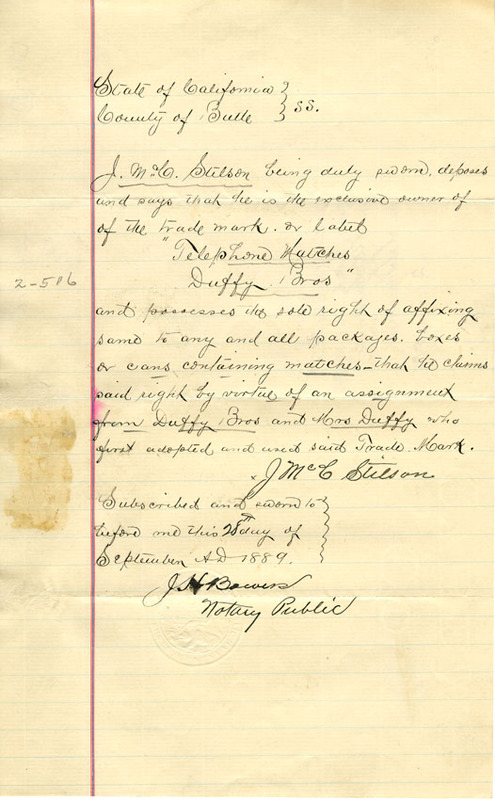 State of California }
County of Butte } SS.
J. McC. Stilson being duly sworn, deposes
and says that he is the exclusive owner of
of the trade mark. or label
"Telephone Matches
Duffy Bros"
2-516
and possesses the sole right of affixing
same to any and all packages. boxes
or cans containing matches - that he claims
said right by virtue of an assignment
from Duffy Bros and Mrs Duffy who
first adopted and used said Trade Mark.
J McC Stilson
Subscribed and sworn to
before me this 28th day of
September AD 1889.
J H Bowers
Notary Public